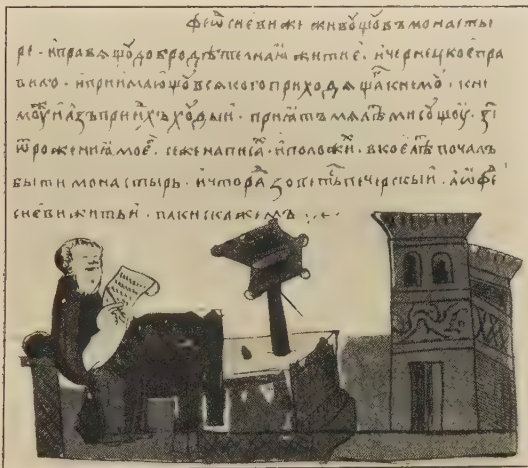 феѡⷣ҇сиеви же живꙋщꙋ въ монасты
ре · и правѧщꙋ добродѣтелнаꙗ житиѐ · и чернецкоѐ пра
вило · и приимающꙋ всѧкого приходѧщаⷢ҇ к немꙋ · к не
мꙋ и азъ прииⷣхъ хꙋдыи · и приѧтъ мѧ лѣⷮ ми сꙋщꙋ · з҃і
ѿ роженїꙗ моеⷢ҇ · се же написаⷯ и положиⷯ · в кое лѣⷮ почалъ
быти монастырь · и что раⷣ зоветⸯ печерскыи · а ѡ феѡⷣ
сиеви житьи · паки скажемъ